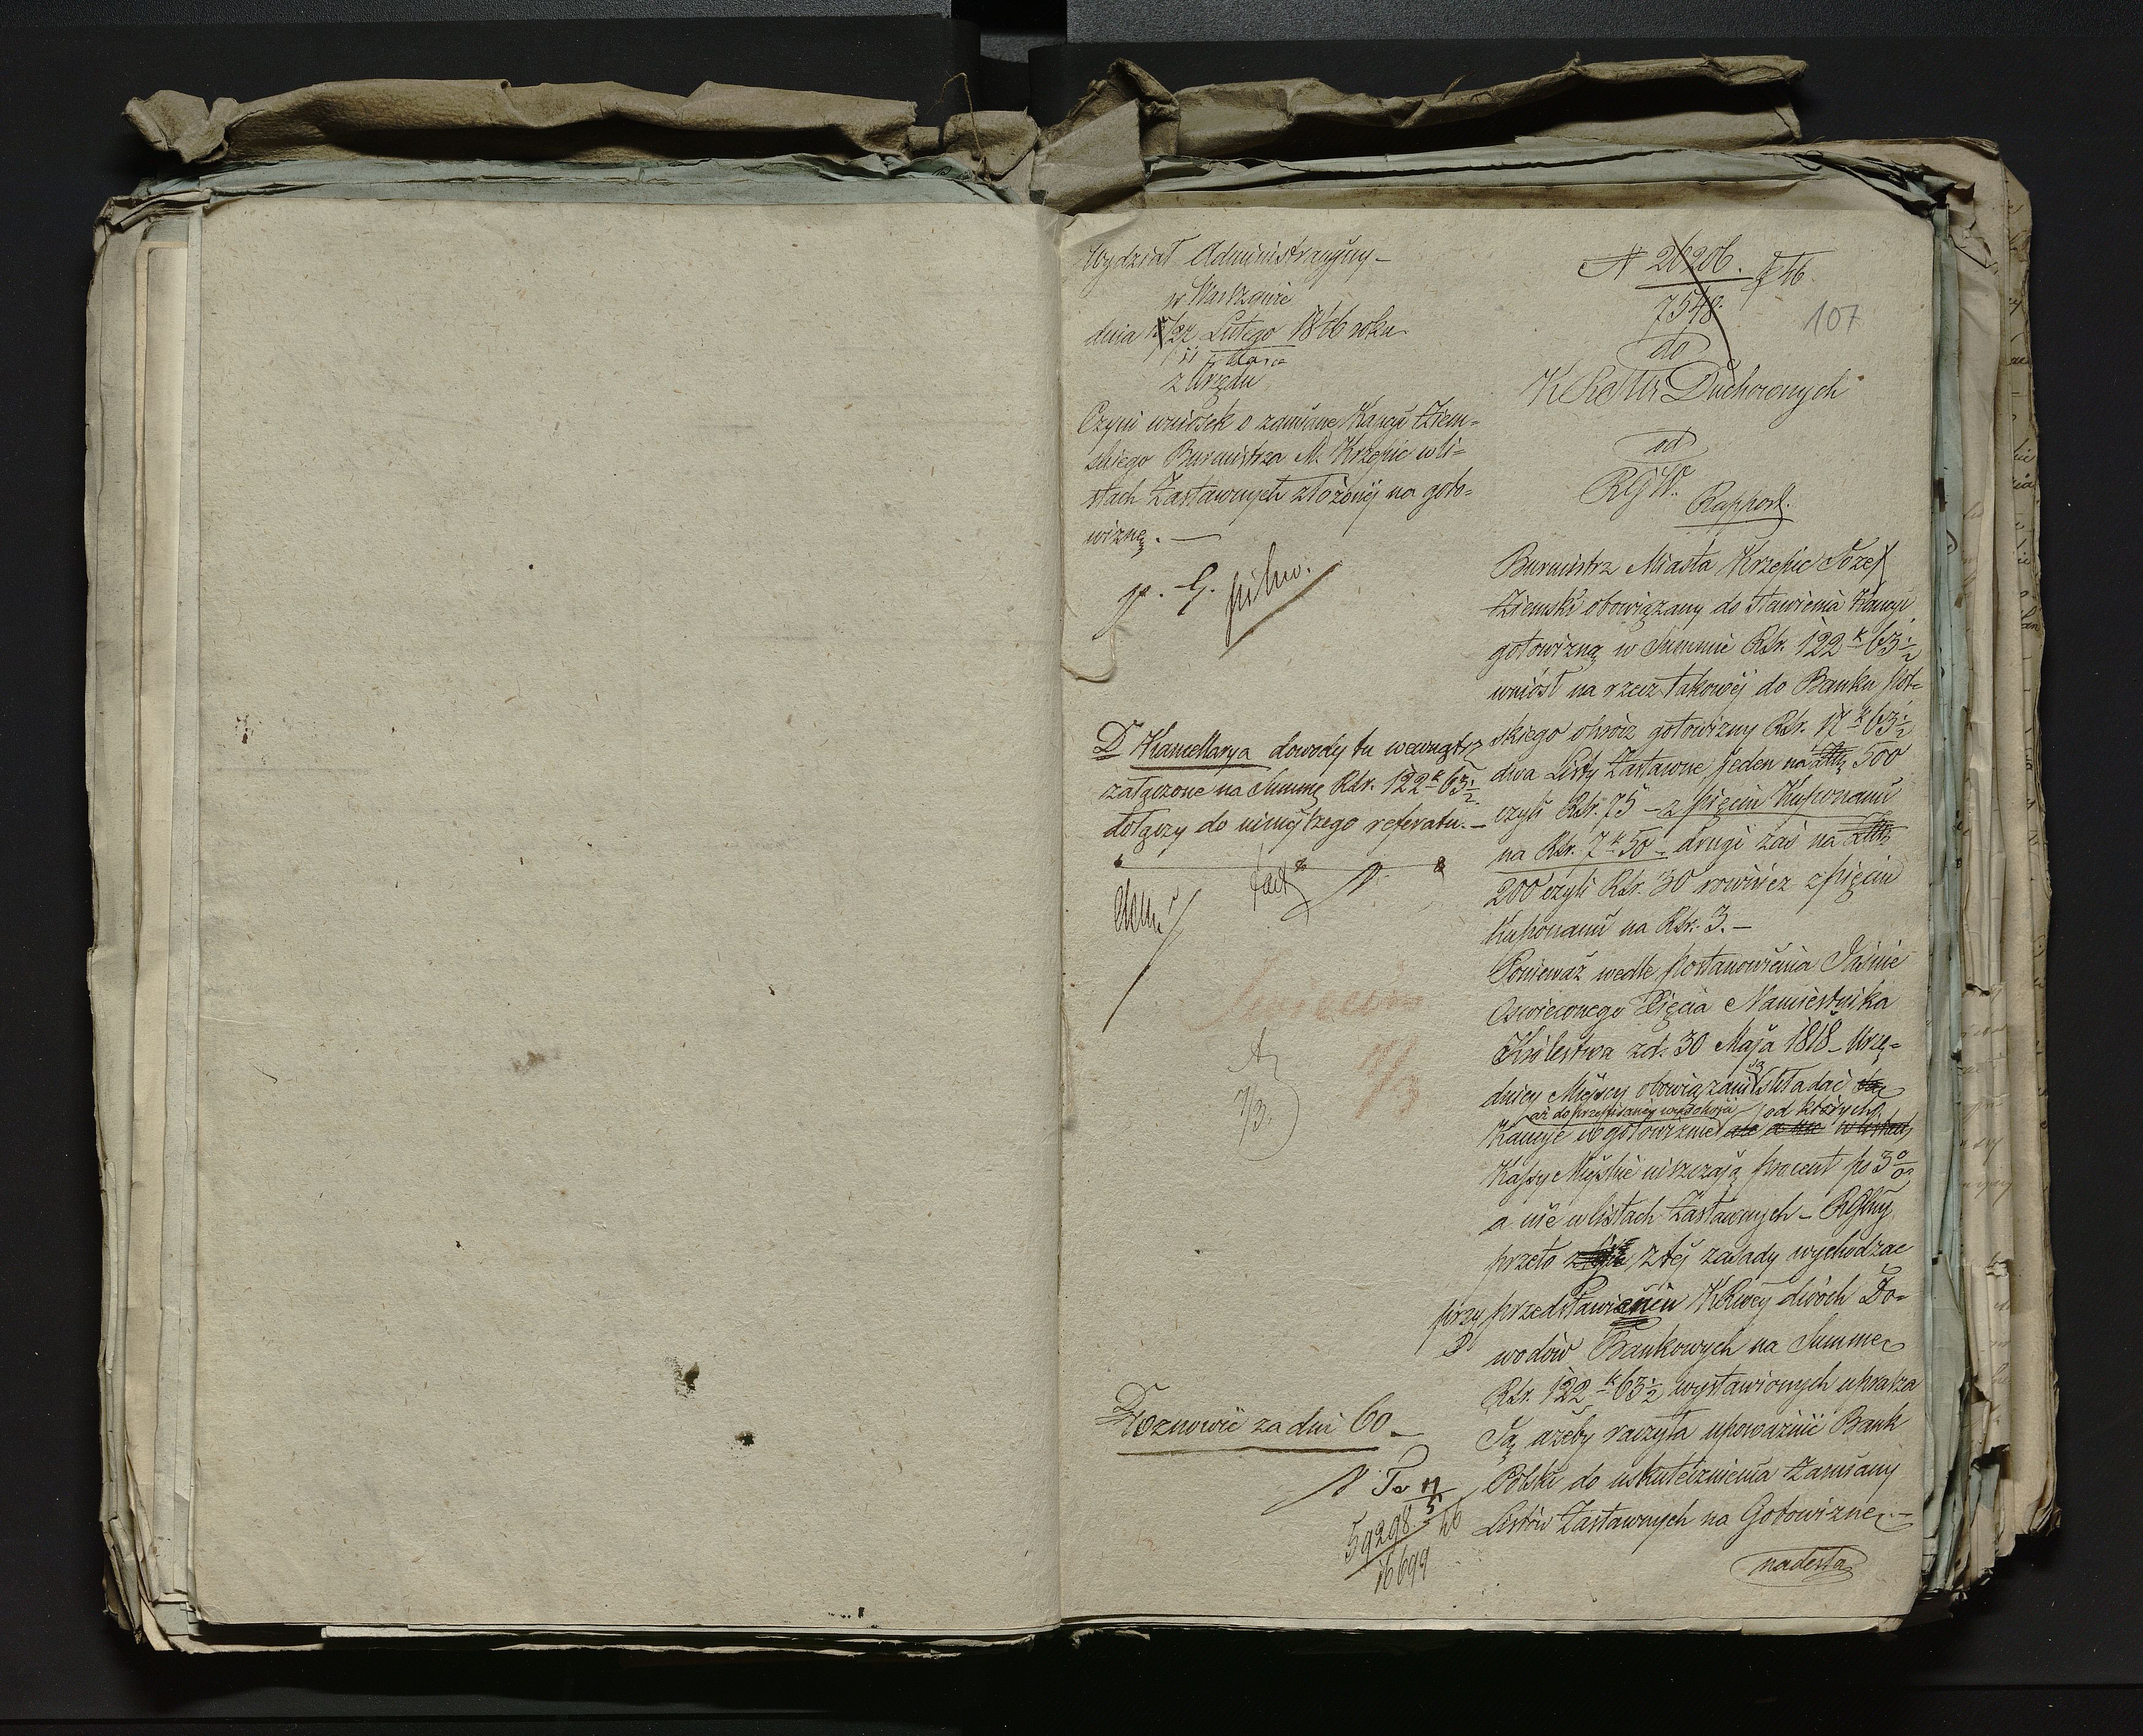 Wydział Administracyjny –
w Warszawie
dnia /22 Lutego 1846 roku
11 Marca
z Urzędu
Czyni wniosek o zamianę Kaucyi Ziem=
skiego Burmistrza M. Krzepic w li=
stach Zastawnych złożonéj na goto=
wiznę. —
p. G. pilno.
D Kancellarya dowody tu wewnątrz
załączone na Summę Rsr. 122 k 63½
dołączy do niniejszego referatu. –
7/3
7/3.
Wznowić za dni 60 –
59298
16699
46
N 20206. /46.
7548
107
do
K R S W i Duchownych
od
R G W.
Rapport.
Burmistrz Miasta Krzepic Józef
Ziemski obowiązany do stawienia Kaucyi
gotowizną w Summie Rsr. 122 k 63½
wniósł na rzecz takowéj do Banku Pol=
skiego oprócz gotowizny Rsr. 17 k 63½
dwa Listy Zastawne jeden na 500
czyli Rsr. 75 – z pięciu Kuponami
na Rsr. 7 k 50 – drugi zaś na
200 czyli Rsr. 30 również z pięciu
kuponami na Rsr. 3. –
Ponieważ wedle postanowienia Jaśnie
Oświeconego Xięcia Namiestnika
Królestwa z d. 30 Maja 1818 – Urzę=
dnicy Miejscy obowiązani są składać
aż do przepisanéj wysokości od których
Kaucye w gotowiznie
Kassy Miejskie uiszczają procent po 3 %
a nie w listach Zastawnych – RGlny
przeto z téj zasady wychodząc
przy przedstawieniu KRwéj dwóch Do=
wodów Bankowych na Summę
Rsr. 122 k 63½ wystawionych uprasza
Ją ażeby raczyła upoważnić Bank
Polski do uskutecznienia zamiany
Listów Zastawnych na Gotowiznę. –
nadesła